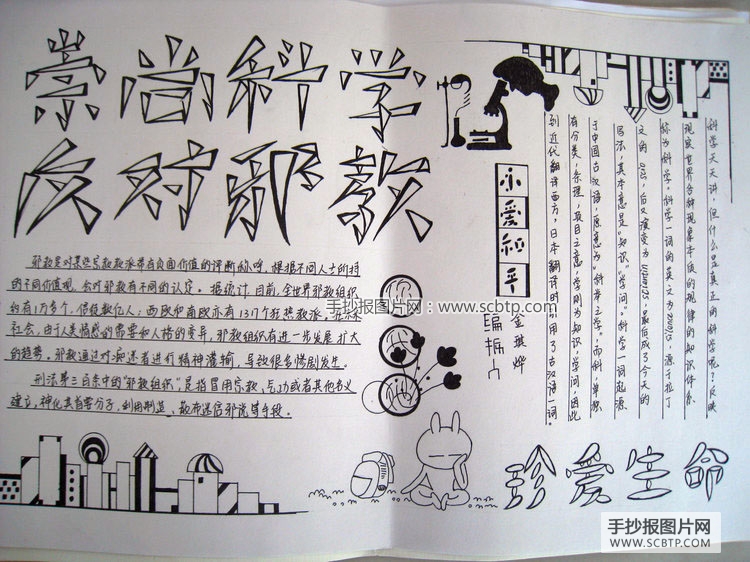 崇尚科学
反对邪教
邪教是对某些宗教教派带有负面价值的评断称呼，根据不同人士所持
的不同价值观，会对邪教有不同的认定。据统计，目前，全世界邪教组织
约有1万多个，信徒数亿人，西欧和南欧亦有1317个狂热教派，
社会，由于人类情感的需要和人格的变异，邪教组织有进一步发展扩大
的趋势。邪教通过对痴迷者进行精神灌输，导致很多惨剧发生。
刑法第三百条中的“邪教组织”是指冒用宗教、气功或者其他名义
建立，神化其首要分子，利用制造、散布迷信邪说等手段。
手抄报图片网：www.scbtp.com
小爱和平
编
科学天天讲，但什么是真正的科学呢？反映
现实世界各种现象本质的规律的知识体系
称为科学。科学一词的英文为
文的，后又演变为，最后成了今天的
写法，其本意是“知识”“学问”。科学一词起源
于中国古汉语，原意为“科举之学”，
有分类、条理、项目之意，学则为知识、学问，因此
到近代翻译西方、日本翻译时，用了古汉语一词。
珍爱生命
手抄报图片网
SCBTP.COM